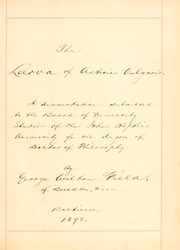 The
Larva of Asterias Vulgaris
A dissertation submitted
to the Board of University
Studies of the Johns Hopkins
University for the degree of
Doctor of Philosophy.
By
George Wilton Field,
of Brockton, Mass
Baltimore,
1892.